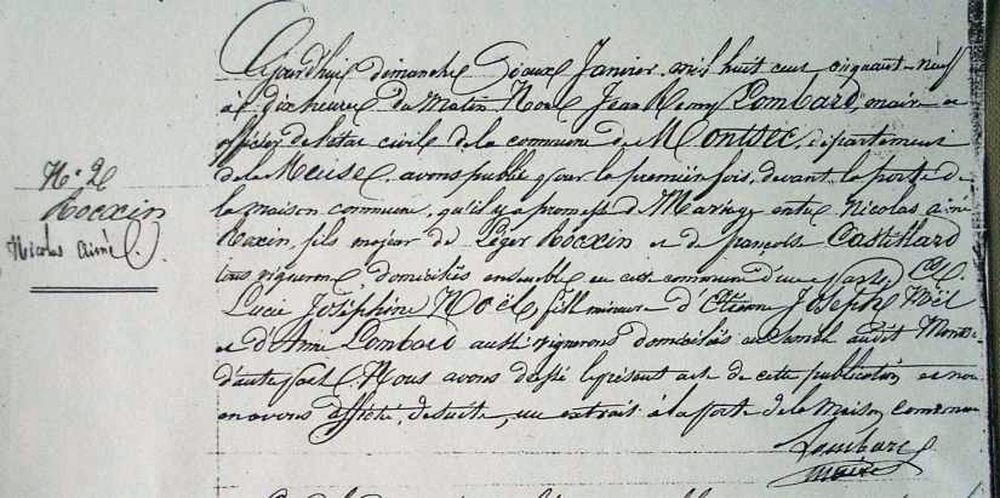 N.° 2
Rocxin
Nicolas aimé.
Aujourd'hui dimanche deux Janvier mil huit cent cinquante-neuf
à dix heures du Matin Nous Jean Remy Lombard, maire et
officier de l'état civil de la commune de Montsec, département
de la Meuse, avons publié pour la première fois, devant la porte de
la maison commune, qu'il y a promesse d Mariage entre Nicolas aimé
Rocxin, fils majeur de Léger Rocxin et de françoise Castillard
tous vignerons domiciliés ensemble en cette commune d'une part, Et
Lucie Joséphine Noël, fille mineure d'Etienne Joseph Noël
et d'Anne Lombard aussi vignerons domiciliés ensemble audit Montsec
d'autre part. Nous avons dressé le présent acte de cette publication et nous
en avons affiché, de suite, un extrait à la porte de la Maison commune
Lombard
maire